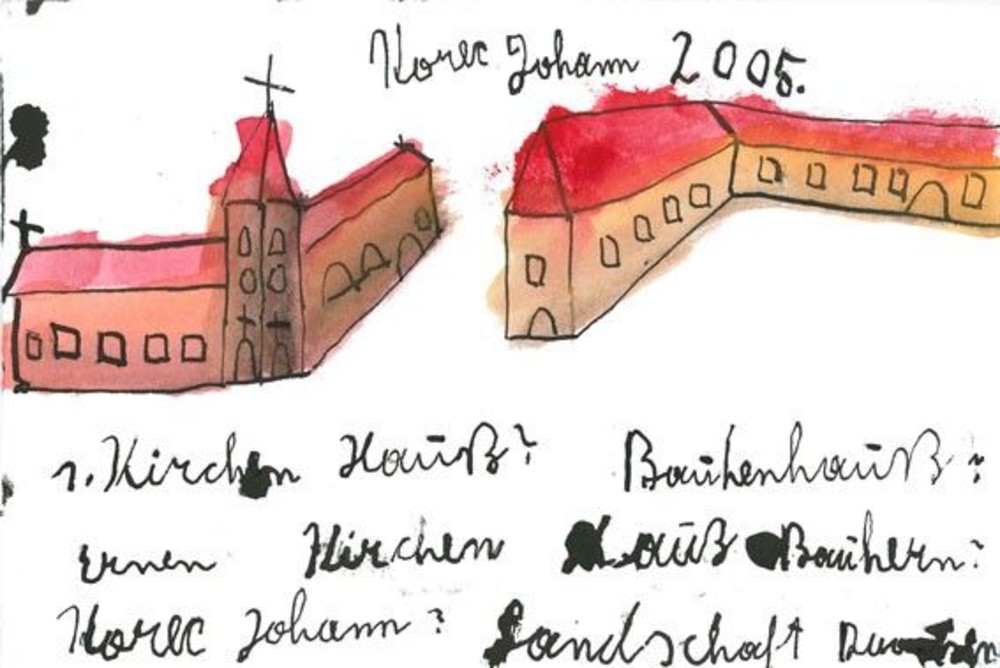 Korec Johann 2005.
1. Kirchen Hauß? Bauhenhauß?
ernen Kirchen Hauß Bauhern?
Korec Johann? Landschaft